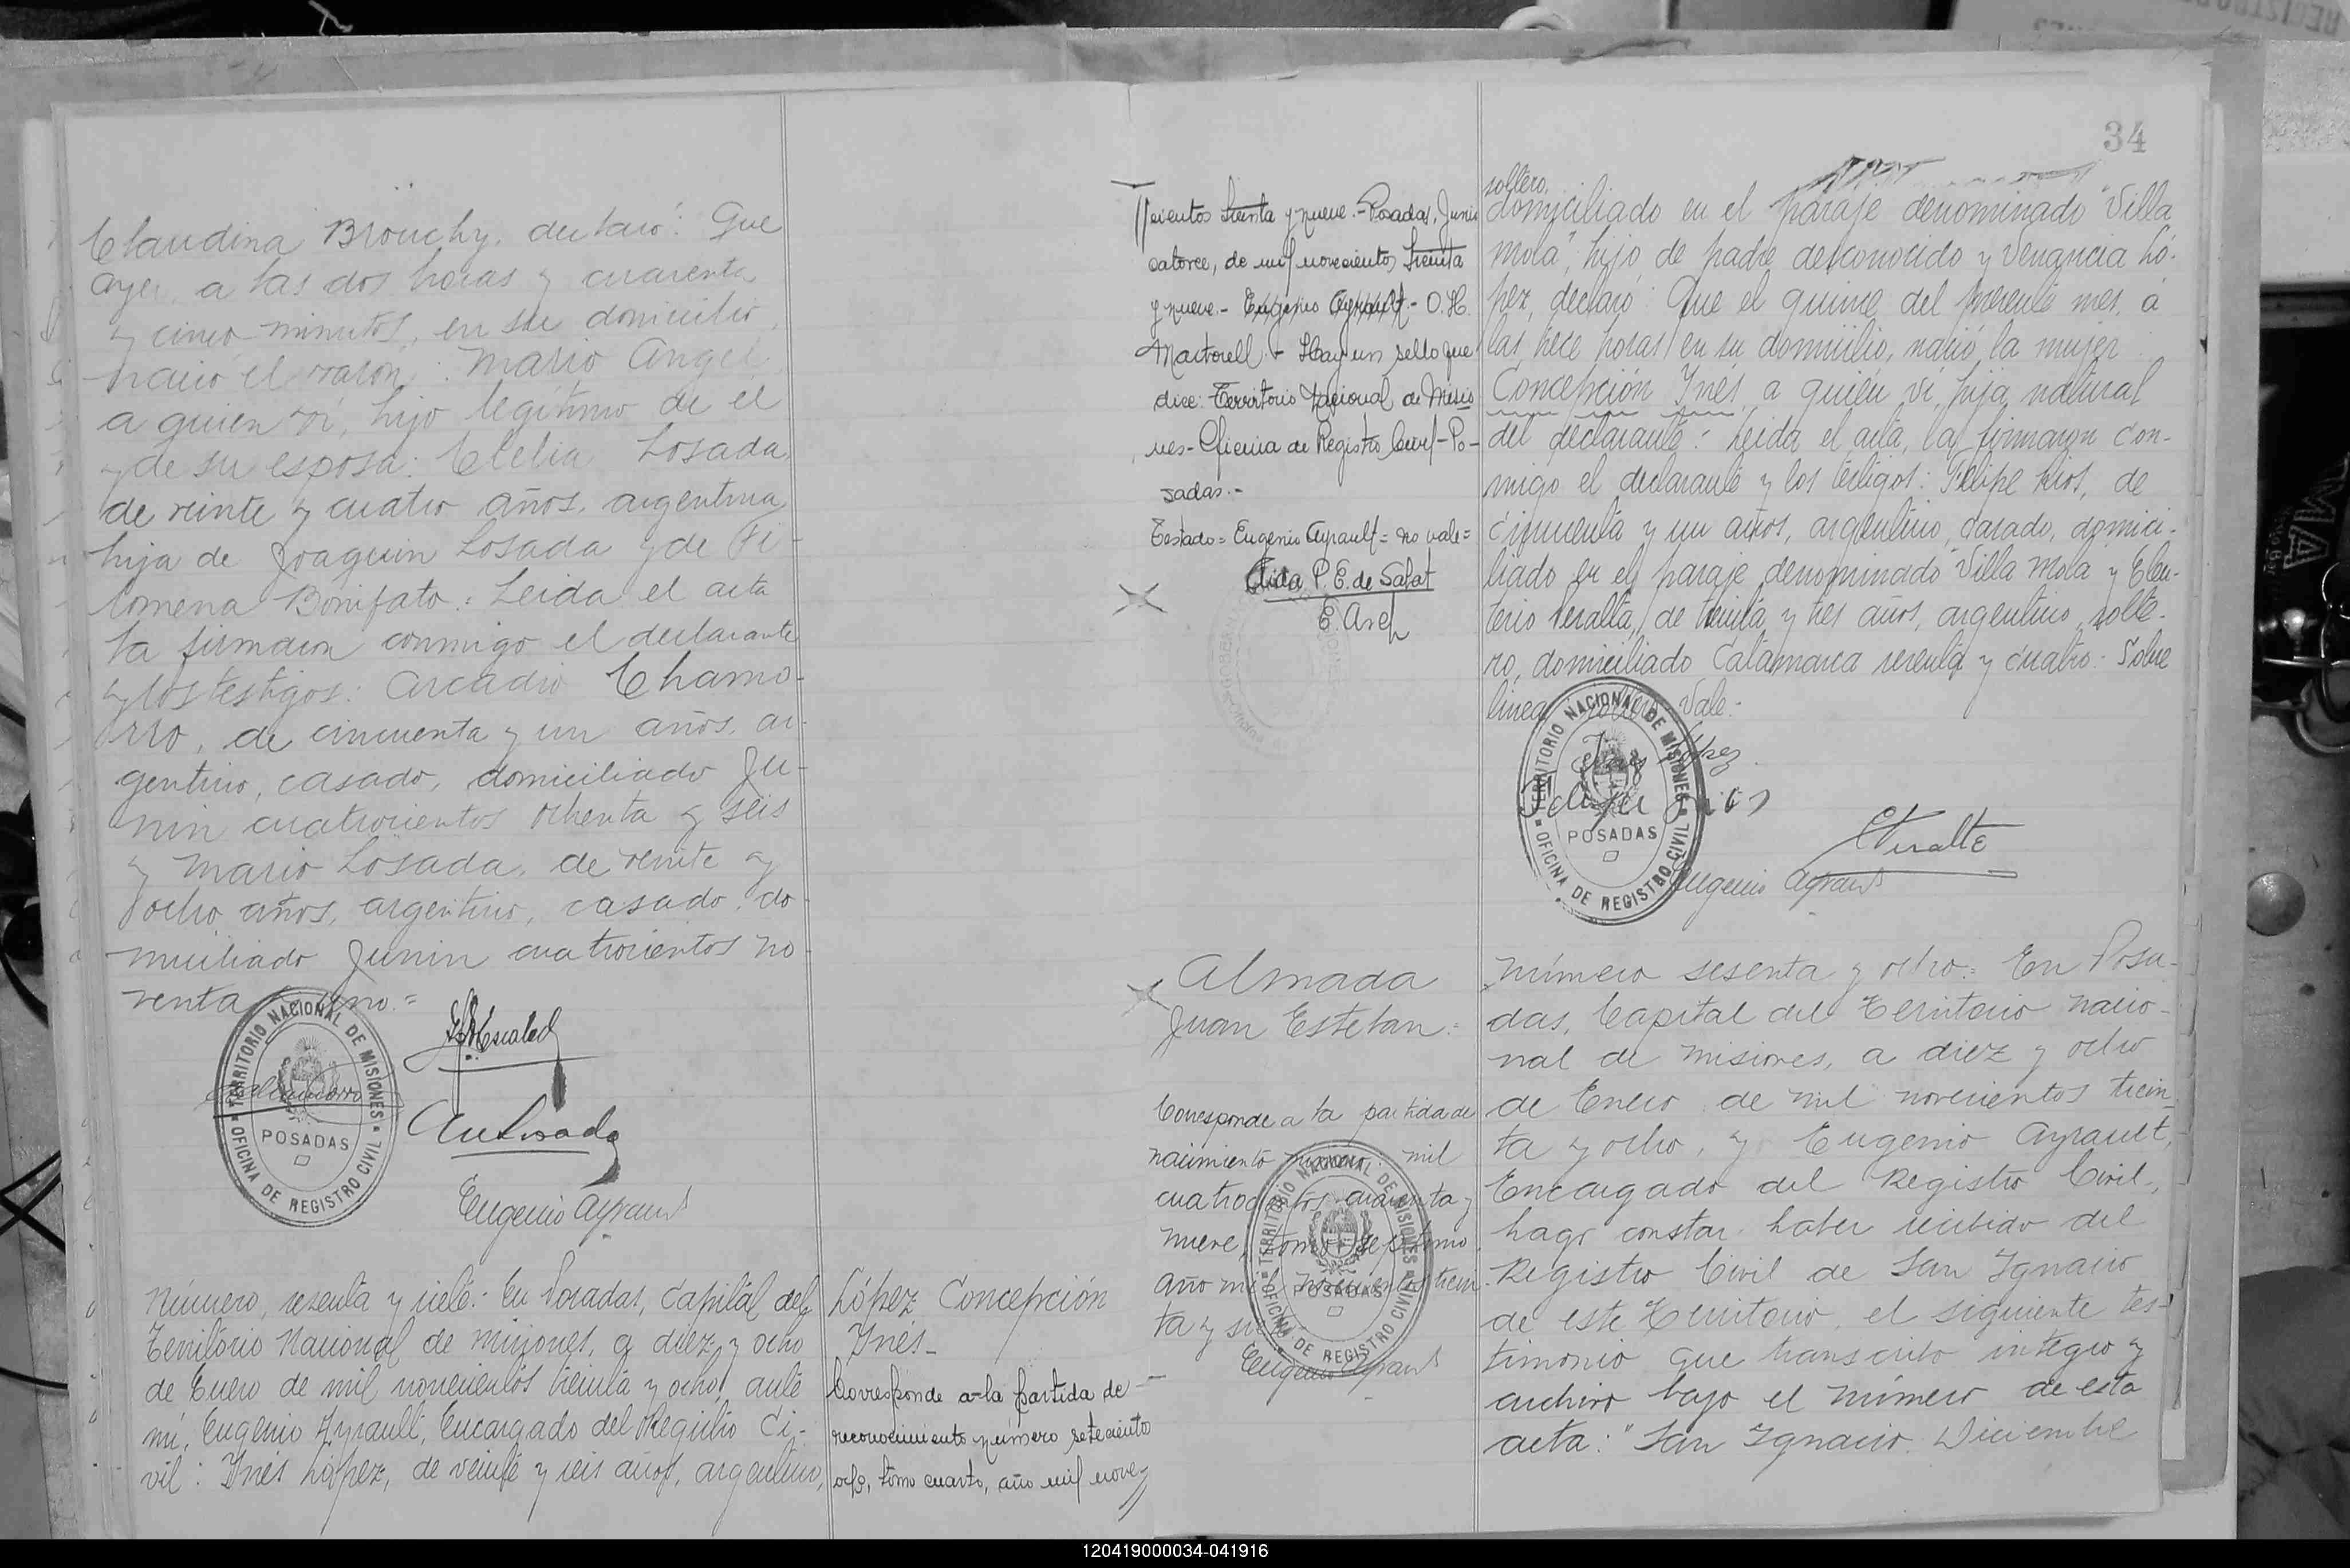 Claudina Brouchy, declaró: Que
ayer, a las dos horas y cuarenta
y cinco minutos, en su domicilio,
nació el varón: Mario Angel
a quien ví, hijo legítimo de él
y de su esposa: Clelia Losada
de veinte y cuatro años, argentina
hija de Joaquin Losada y de Fi-
lomena Bonifato.= Leida el acta
la firmaron conmigo el declarante
y los testigos: Arcadio Chamo-
rro, de cincuenta y un años, ar-
gentino, casado, domiciliado Ju-
nin cuatrocientos ochenta y seis
y Mario Losada, de veinte y
ocho años, argentino, casado, do-
miciliado Junin cuatrocientos no-
venta y uno.=
TERRITORIO NACIONAL DE MISIONES
POSADAS
OFICINA DE REGISTRO CIVIL
Eugenio Ayrault
Número, sesenta y siete.- En Posadas, Capital del
Territorio Nacional de Misiones, a diez y ocho
de Enero de mil novecientos treinta y ocho, ante
mí, Eugenio Ayrault, Encargado del Registro Ci-
vil: Inés López, de veinte y seis años, argentino,
López Concepción
Inés-
Corresponde a la partida de
reconocimiento número setecientos
ocho, tomo cuarto, año mil nove-
34
cientos treinta y nueve.- Posadas, Junio
catorce, de mil novecientos treinta
y nueve.- Eugenio Ayrault.- O.H.
Martorell.- Hay un sello que
dice: Territorio Nacional de Misio
nes- Oficina de Registro Civil- Po-
sadas.-
Testado= Eugenio Ayrault= no vale=
Aida P. E. de Salat
soltero,
domiciliado en el paraje denominado "Villa
Mola", hijo de padre desconocido y Venancia Ló-
pez, declaró: Que el quince del presente mes, a
las trece horas, en su domicilio, nació la mujer
Concepción Inés, a quién ví, hija natural
del declarante: Leida el acta, la firmaron con-
migo el declarante y los testigos: Felipe Rios, de
cincuenta y un años, argentino, casado, domici-
liado en el paraje denominado "Villa Mola" y Eleu-
terio Peralta, de treinta y tres años, argentino, solte-
ro, domiciliado Catamarca sesenta y cuatro.- Sobre
línea: soltero, Vale.-
Inés López
Felipe Rios
TERRITORIO NACIONAL DE MISIONES
POSADAS
OFICINA DE REGISTRO CIVIL
E Peralta
Eugenio Ayrault
Almada
Juan Esteban.=
Corresponde a la partida de
nacimiento número: mil
cuatrocientos cuarenta y
nueve, tomo septimo
año mil novecientos trein
ta y siete
TERRITORIO NACIONAL DE MISIONES
POSADAS
OFICINA DE REGISTRO CIVIL
Eugenio Ayrault
Número sesenta y ocho.= En Posa-
das, Capital del Territorio Nacio-
nal de Misiones, a diez y ocho
de Enero de mil novecientos trein-
ta y ocho, y Eugenio Ayrault,
Encargado del Registro Civil,
hago constar haber recibido del
Registro Civil de San Ignacio
de este Territorio, el siguiente tes-
timonio que transcribo integro y
archivo bajo el número de esta
acta: "San Ignacio. Diciembre
120419000034-041916